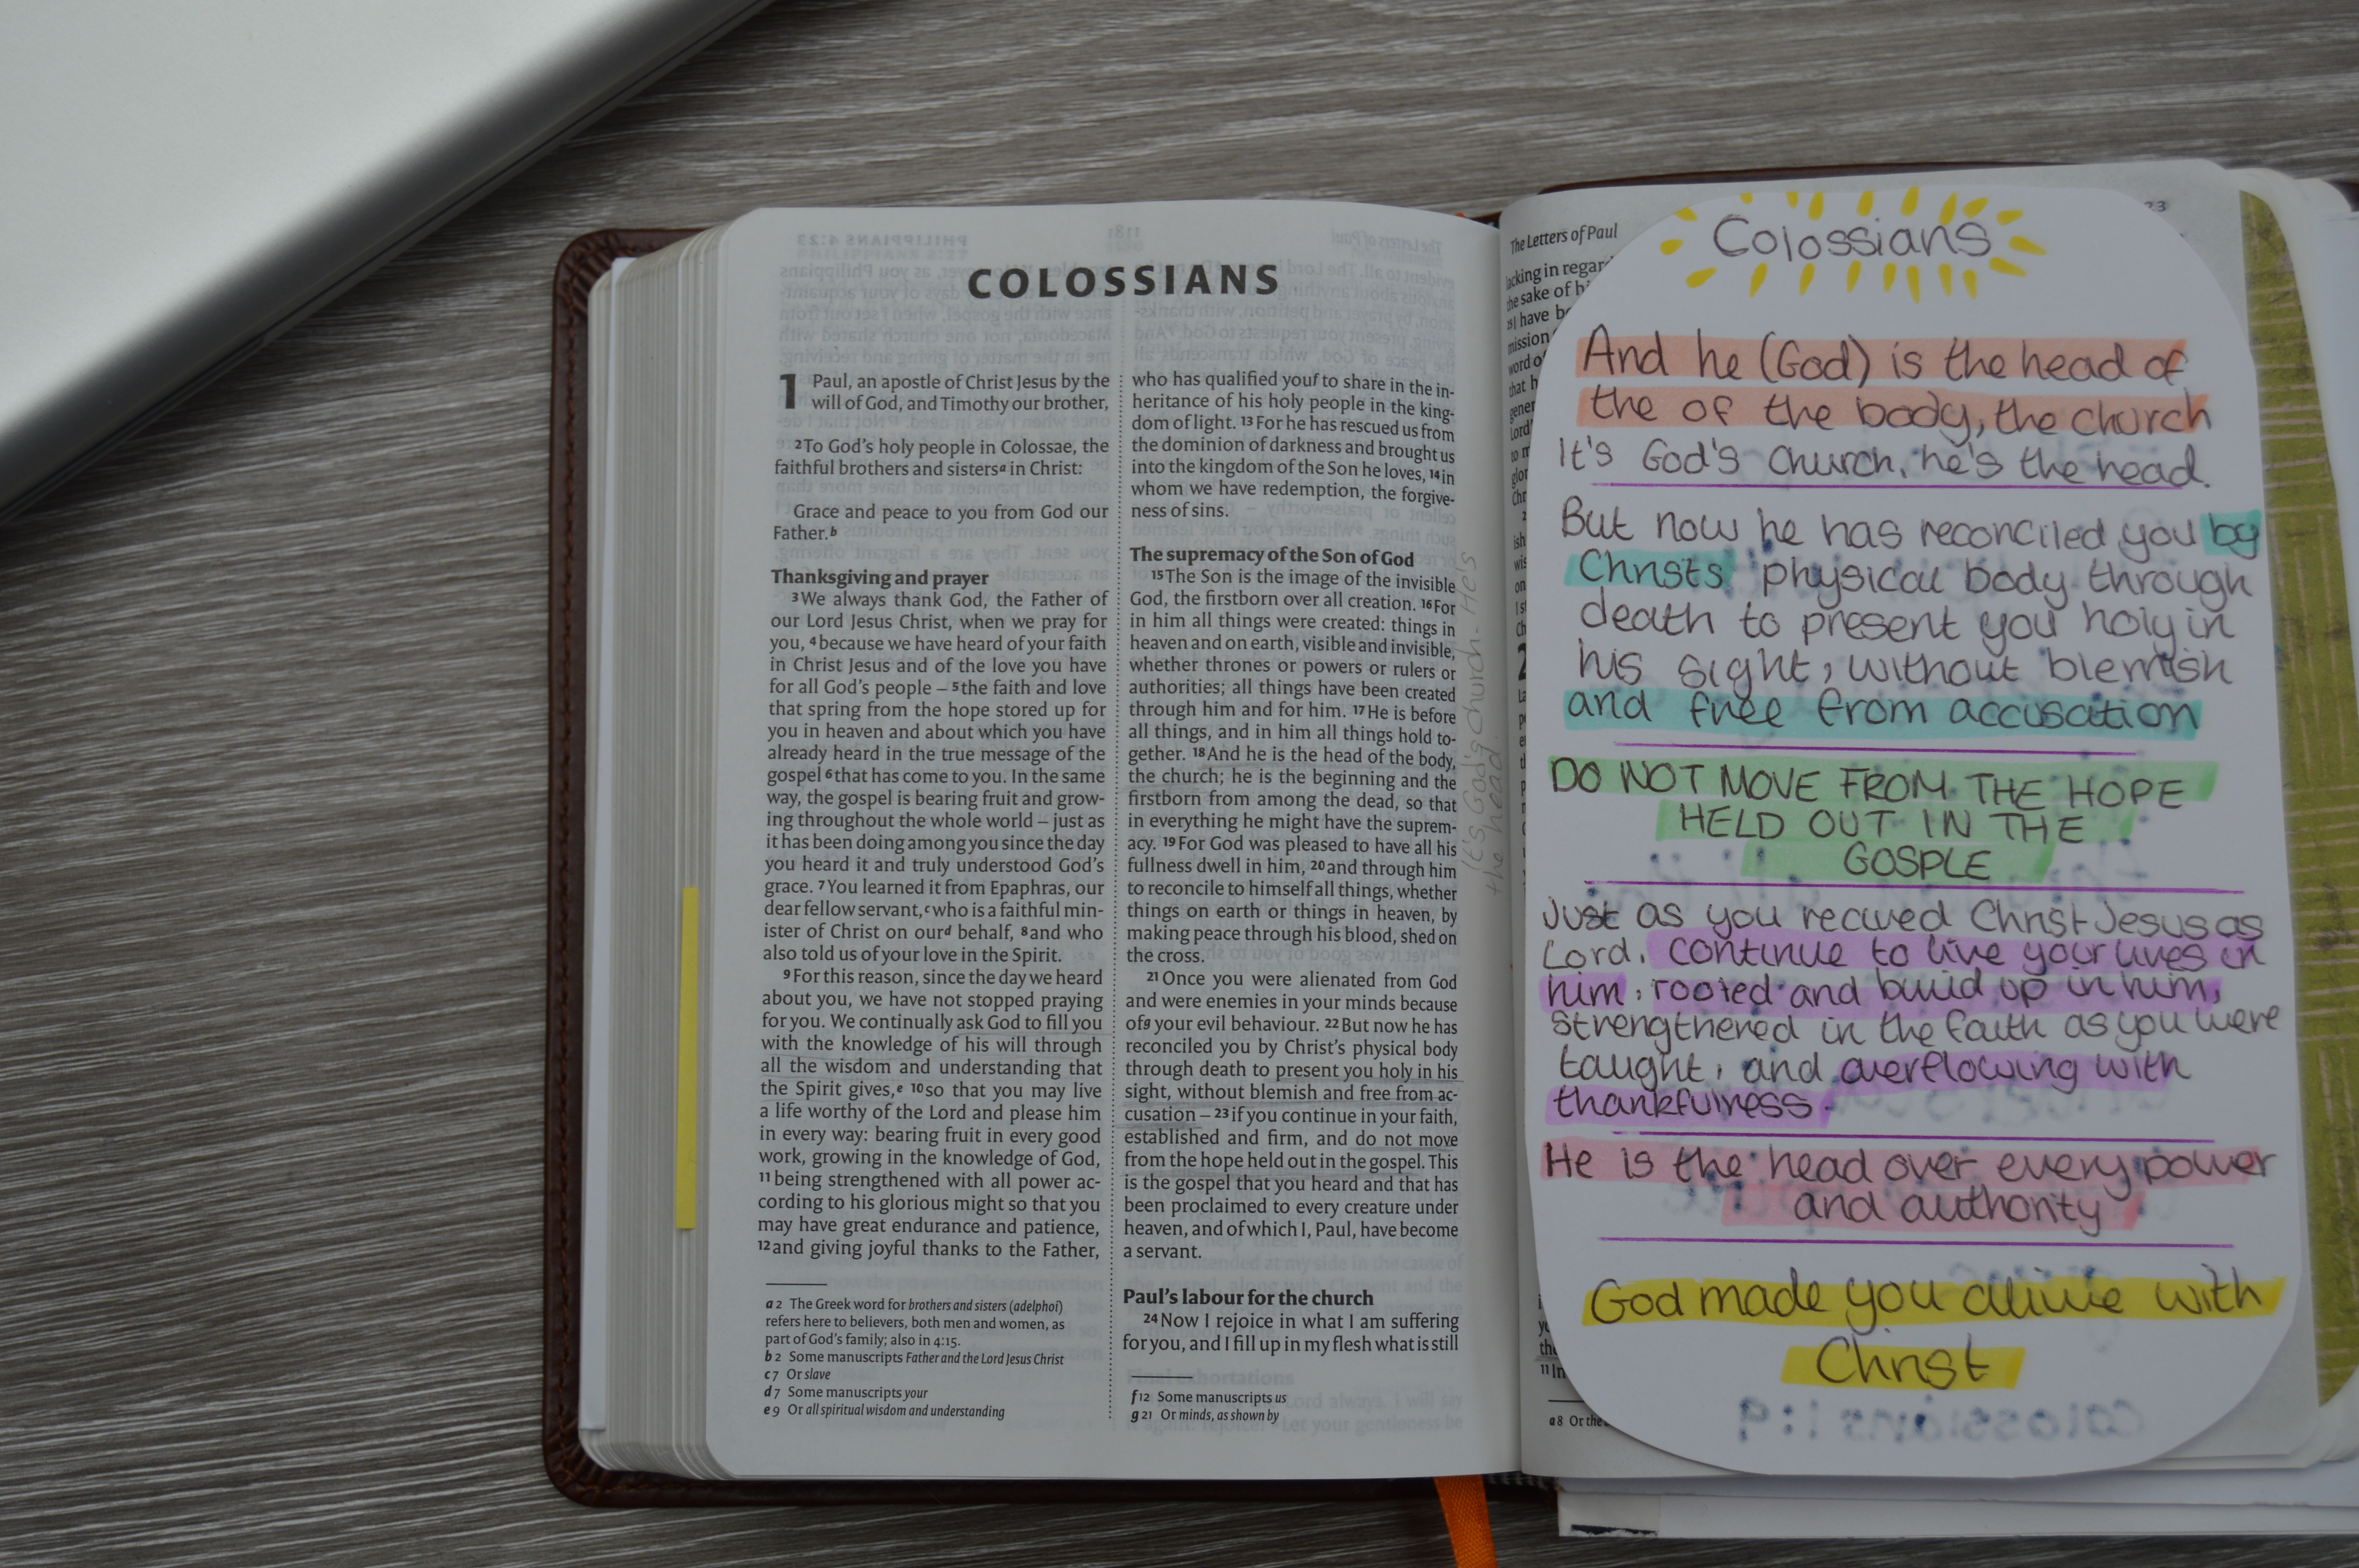 COLOSSIANS
1 Paul, an apostle of Christ Jesus by the
will of God, and Timothy our brother,
2 To God's holy people in Colossae, the
faithful brothers and sisters a in Christ:
Grace and peace to you from God our
Father. b
Thanksgiving and prayer
3 We always thank God, the Father of
our Lord Jesus Christ, when we pray for
you, 4 because we have heard of your faith
in Christ Jesus and of the love you have
for all God's people – 5 the faith and love
that spring from the hope stored up for
you in heaven and about which you have
already heard in the true message of the
gospel 6 that has come to you. In the same
way, the gospel is bearing fruit and grow-
ing throughout the whole world – just as
it has been doing among you since the day
you heard it and truly understood God's
grace. 7 You learned it from Epaphras, our
dear fellow servant, c who is a faithful min-
ister of Christ on our d behalf, 8 and who
also told us of your love in the Spirit.
9 For this reason, since the day we heard
about you, we have not stopped praying
for you. We continually ask God to fill you
with the knowledge of his will through
all the wisdom and understanding that
the Spirit gives, e 10 so that you may live
a life worthy of the Lord and please him
in every way: bearing fruit in every good
work, growing in the knowledge of God,
11 being strengthened with all power ac-
cording to his glorious might so that you
may have great endurance and patience,
12 and giving joyful thanks to the Father,
a 2 The Greek word for brothers and sisters (adelphoi)
refers here to believers, both men and women, as
part of God's family; also in 4:15.
b 2 Some manuscripts Father and the Lord Jesus Christ
c 7 Or slave
d 7 Some manuscripts your
e 9 Or all spiritual wisdom and understanding
who has qualified you f to share in the in-
heritance of his holy people in the king-
dom of light. 13 For he has rescued us from
the dominion of darkness and brought us
into the kingdom of the Son he loves, 14 in
whom we have redemption, the forgive-
ness of sins.
The supremacy of the Son of God
15 The Son is the image of the invisible
God, the firstborn over all creation. 16 For
in him all things were created: things in
heaven and on earth, visible and invisible,
whether thrones or powers or rulers or
authorities; all things have been created
through him and for him. 17 He is before
all things, and in him all things hold to-
gether. 18 And he is the head of the body,
the church; he is the beginning and the
firstborn from among the dead, so that
in everything he might have the suprem-
acy. 19 For God was pleased to have all his
fullness dwell in him, 20 and through him
to reconcile to himself all things, whether
things on earth or things in heaven, by
making peace through his blood, shed on
the cross.
21 Once you were alienated from God
and were enemies in your minds because
of g your evil behaviour. 22 But now he has
reconciled you by Christ's physical body
through death to present you holy in his
sight, without blemish and free from ac-
cusation – 23 if you continue in your faith,
established and firm, and do not move
from the hope held out in the gospel. This
is the gospel that you heard and that has
been proclaimed to every creature under
heaven, and of which I, Paul, have become
a servant.
Paul's labour for the church
24 Now I rejoice in what I am suffering
for you, and I fill up in my flesh what is still
f 12 Some manuscripts us
g 21 Or minds, as shown by
It's God's church. He's
the head.
The Letters of Paul
lacking in regar
the sake of
I have
mission
word of
a 8 Or the
Colossians
And he (God) is the head of
the of the body, the church
It's God's church, he's the head.
But now he has reconciled you by
Christs physical body through
death to present you holy in
his sight, without blemish
and free from accusation
DO NOT MOVE FROM THE HOPE
HELD OUT IN THE
GOSPLE
Just as you recived Christ Jesus as
Lord, continue to live your lives in
him, rooted and build up in him,
strengthened in the faith as you were
taught, and overflowing with
thankfulness.
He is the head over every power
and authority
God made you alive with
Christ
colossians 1:9